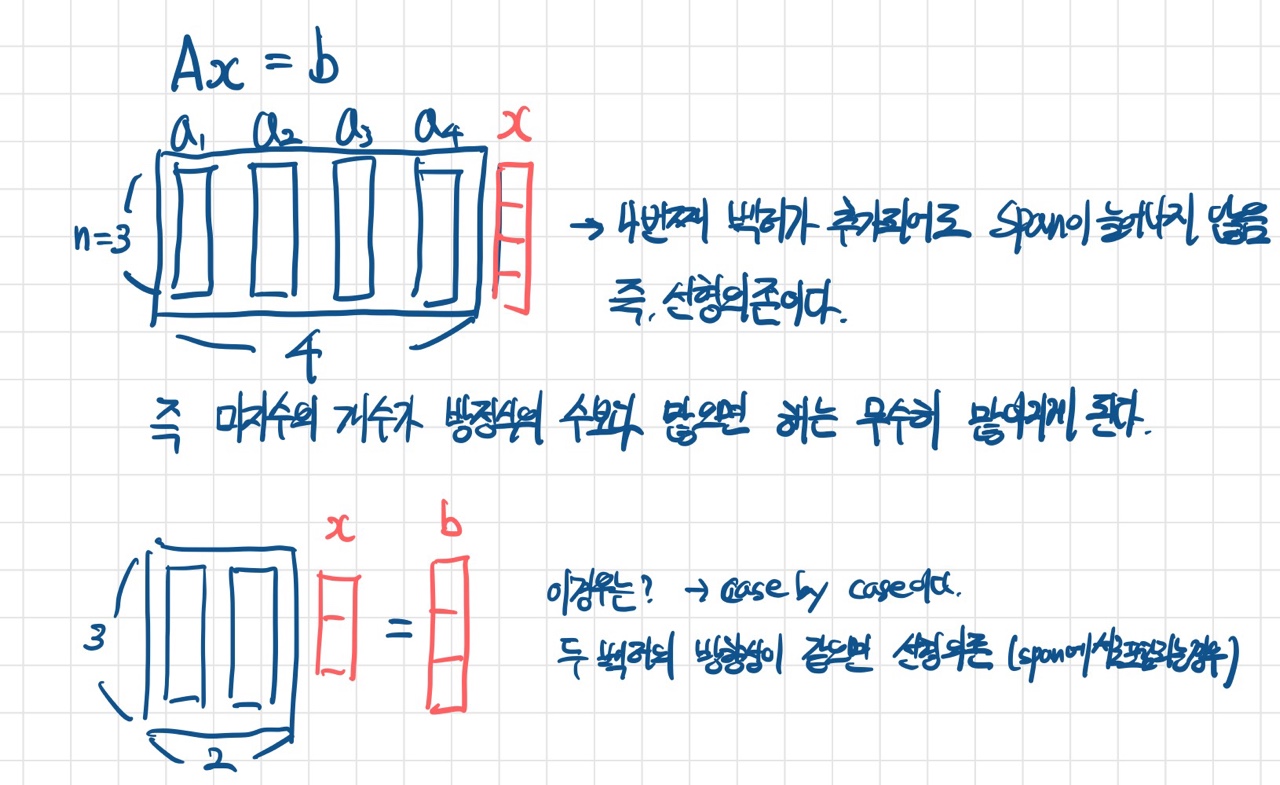 Ax = b
a₁ a₂ a₃ a₄ x
n=3
→ 4번째 벡터가 추가되어도 span이 늘어나지 않음
즉, 선형의존이다.
4
즉 미지수의 개수가 방정식의 수보다 많으면 해는 무수히 많아지게 된다.
x b
3
=
이경우는? → case by case이다.
두 벡터의 방향성이 같으면 선형의존 (span에 포함되는경우)
2